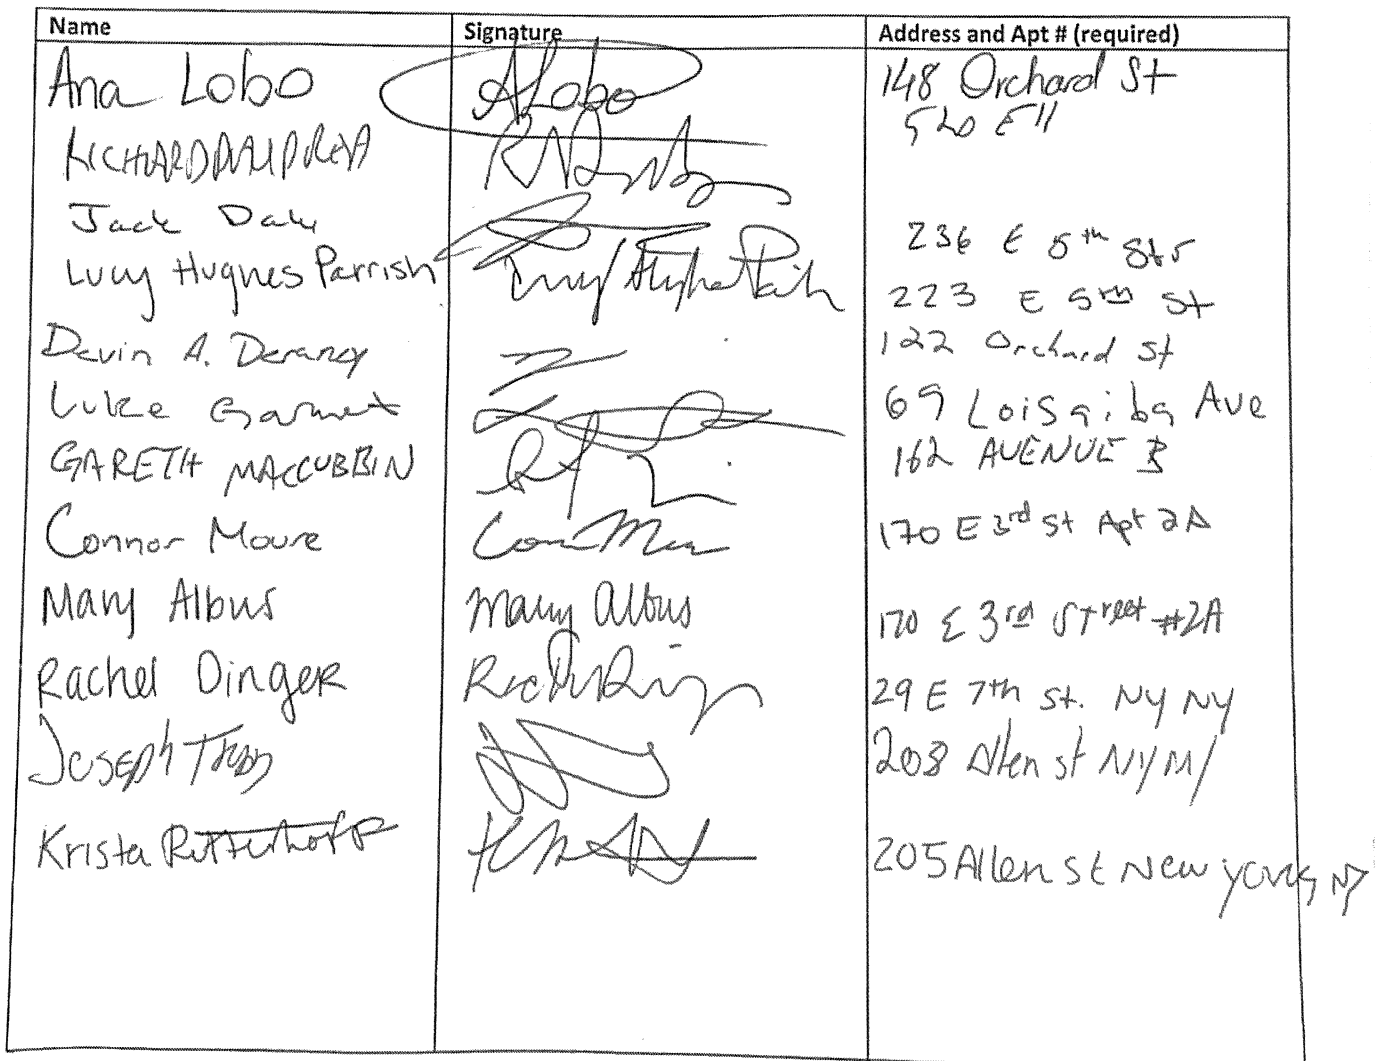 Name Signature Address and Apt # (required)
Ana Lobo ALobo 148 Orchard St
RICHARD 520 E 11
Jack Dale 236 E 5th St
Lucy Hughes Parrish 223 E 5th St
Devin A. 122 Orchard St
Luke Garnet 69 Loisaida Ave
GARETH MACCUBBIN 162 AVENUE B
Connor Moure 170 E 3rd St Apt 2A
Mary Albus Mary Albus 170 E 3rd Street #2A
Rachel Dinger 29 E 7th St. NY NY
Joseph 208 Allen st NY NY
Krista Ritterhoff 205 Allen st New York, NY